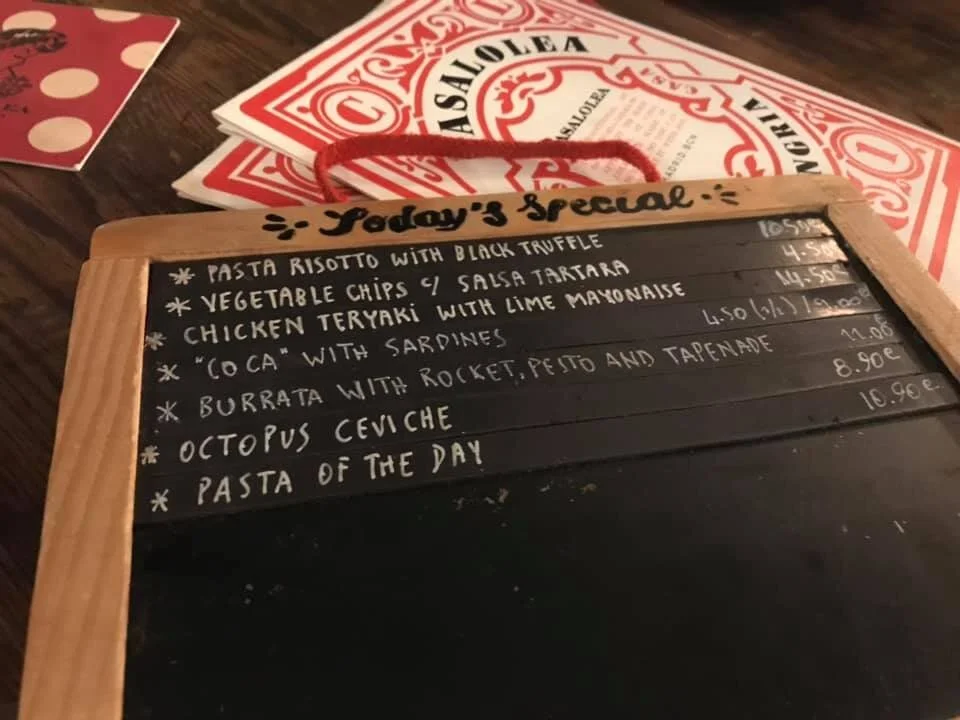 C
L
ASALOLEA
CASA
ASALOLEA
NGRIA
Today's Special
* PASTA RISOTTO WITH BLACK TRUFFLE 10.50€
* VEGETABLE CHIPS C/ SALSA TARTARA 4.50€
* CHICKEN TERYAKI WITH LIME MAYONAISE 14.50€
* "COCA" WITH SARDINES 4.50 (1/2) / 9.00€
* BURRATA WITH ROCKET, PESTO AND TAPENADE 11.00€
* OCTOPUS CEVICHE 8.90€
* PASTA OF THE DAY 10.90€